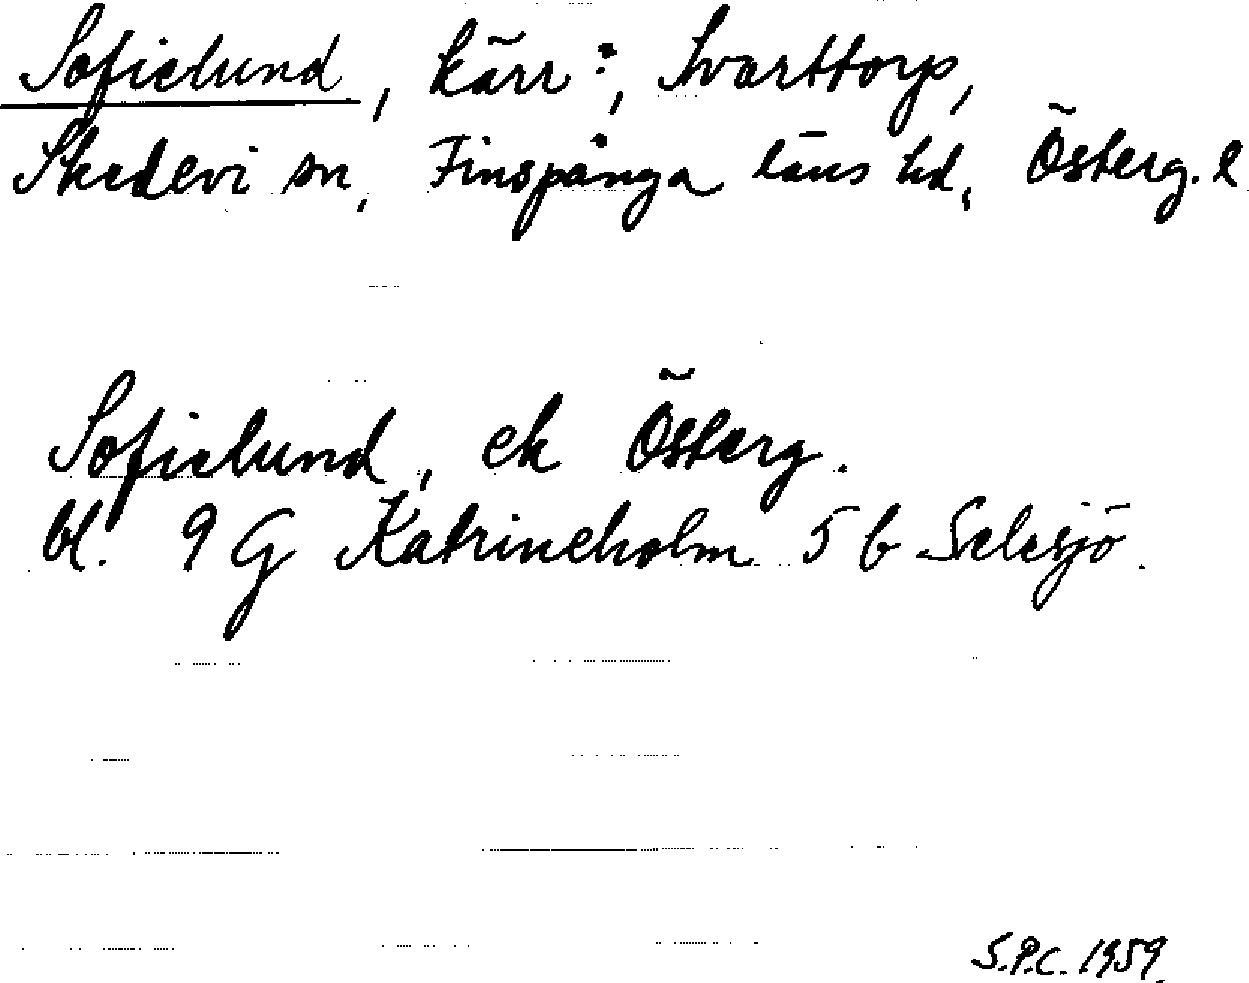 Sofielund, kärr:, Svarttorp,
Skedevi sn, Finspånga läns hd, Österg. l
Sofielund, ek Österg.
bl. 9 G Katrineholm 5 b Selesjö.
S.P.C. 1959.